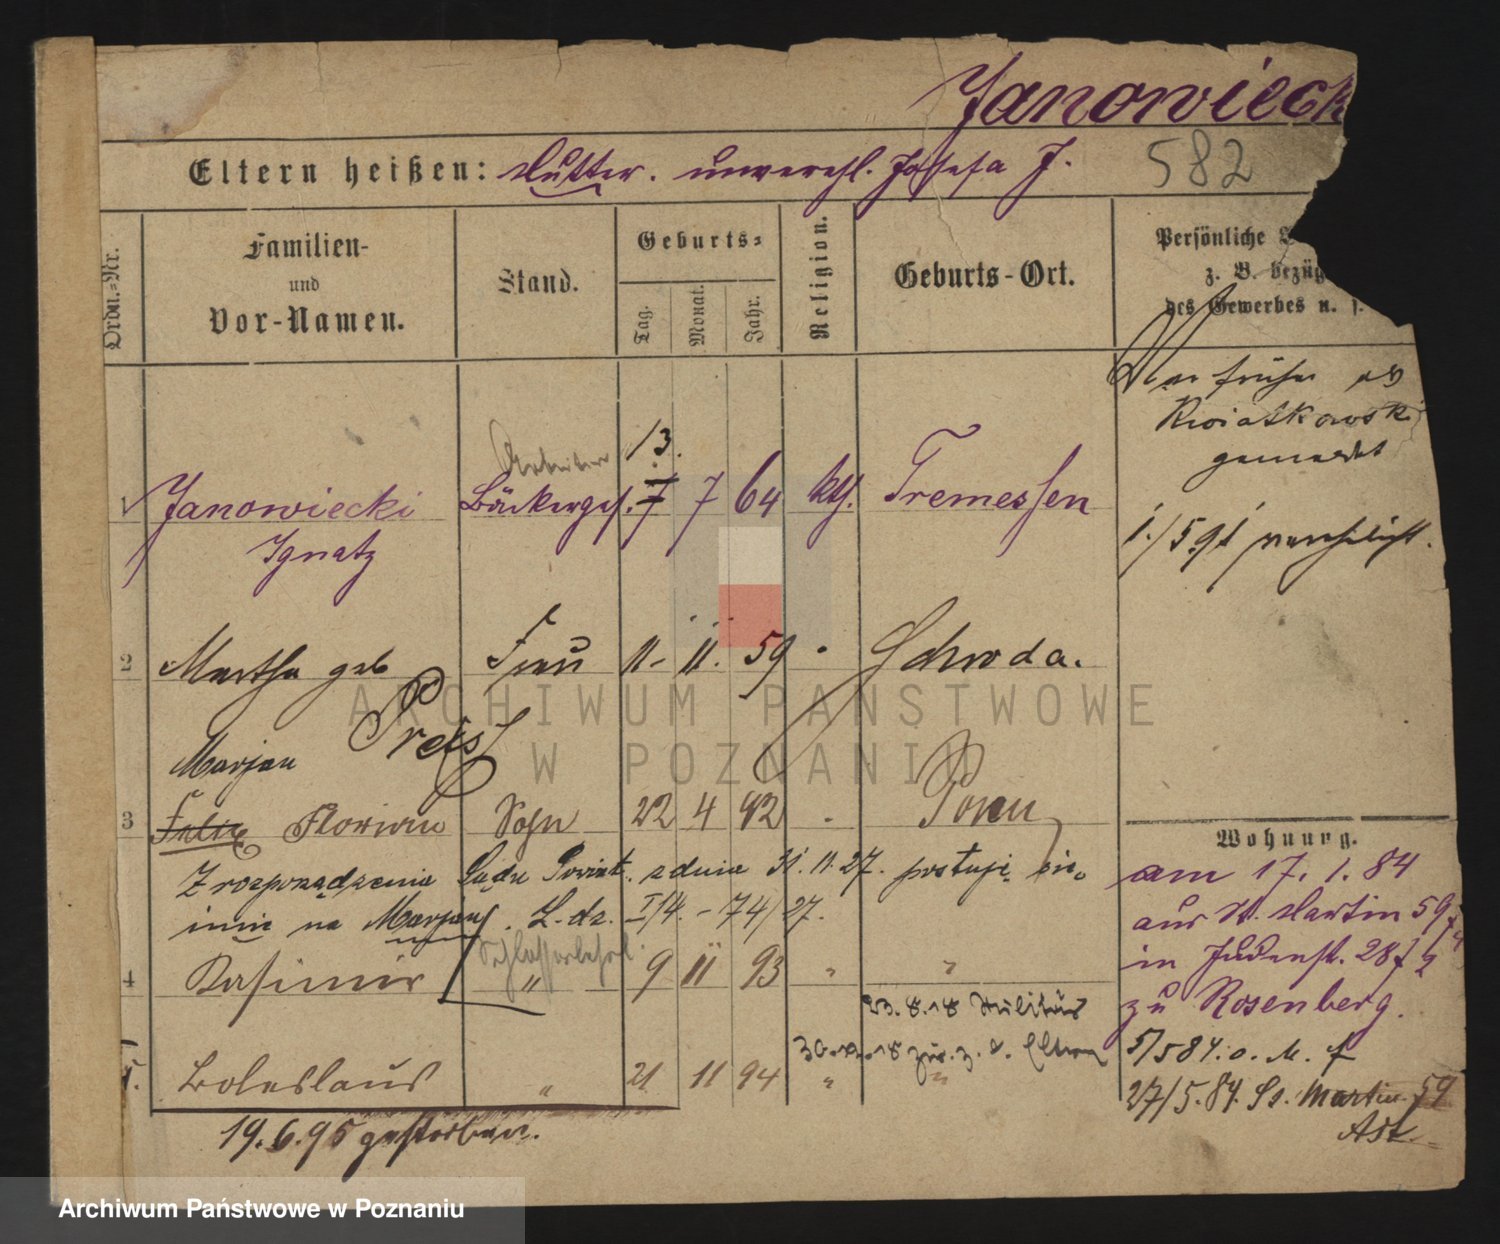 Janowieck
Eltern heißen: Mutter. unverehl. Josefa J.
582
Ordn.-Nr.
Familien-
und
Vor-Namen.
Stand.
Geburts-
Tag.
Monat.
Jahr.
Religion.
Geburts-Ort.
Persönliche
z. B. bezüg
des Gewerbes u. s.
War früher als
Kwiatkowski
gemeldet
1./5 91 verehelicht.
Arbeiter
13.
1 Janowiecki Bäckerges. 7 7 64 kth. Tremessen
Ignatz
2 Martha geb Frau 11 11. 59 " Schroda.
Preiss
Marjan
3 Felix Florian Sohn 22 4 92 " Posen
Z rozporządzenia Sądu Powiat. z dnia 31.11.27. prostuje się
imię na Marjan. L. dz. I/4. - 74/27.
Schlosserlehrl
4 Kasimir " 9 11 93 " "
23.8.18 Militär
30.12.18 zur. z. d. Eltern
5. Boleslaus " 21 11 94 " "
19.6.95 gestorben.
Wohnung.
am 17. 1. 84
aus St. Martin 59
in Judenstr. 28
zu Rosenberg.
5/5 84. o. M. f
27/5. 84. St. Martin 59
Archiwum Państwowe
w Poznaniu
Archiwum Państwowe w Poznaniu